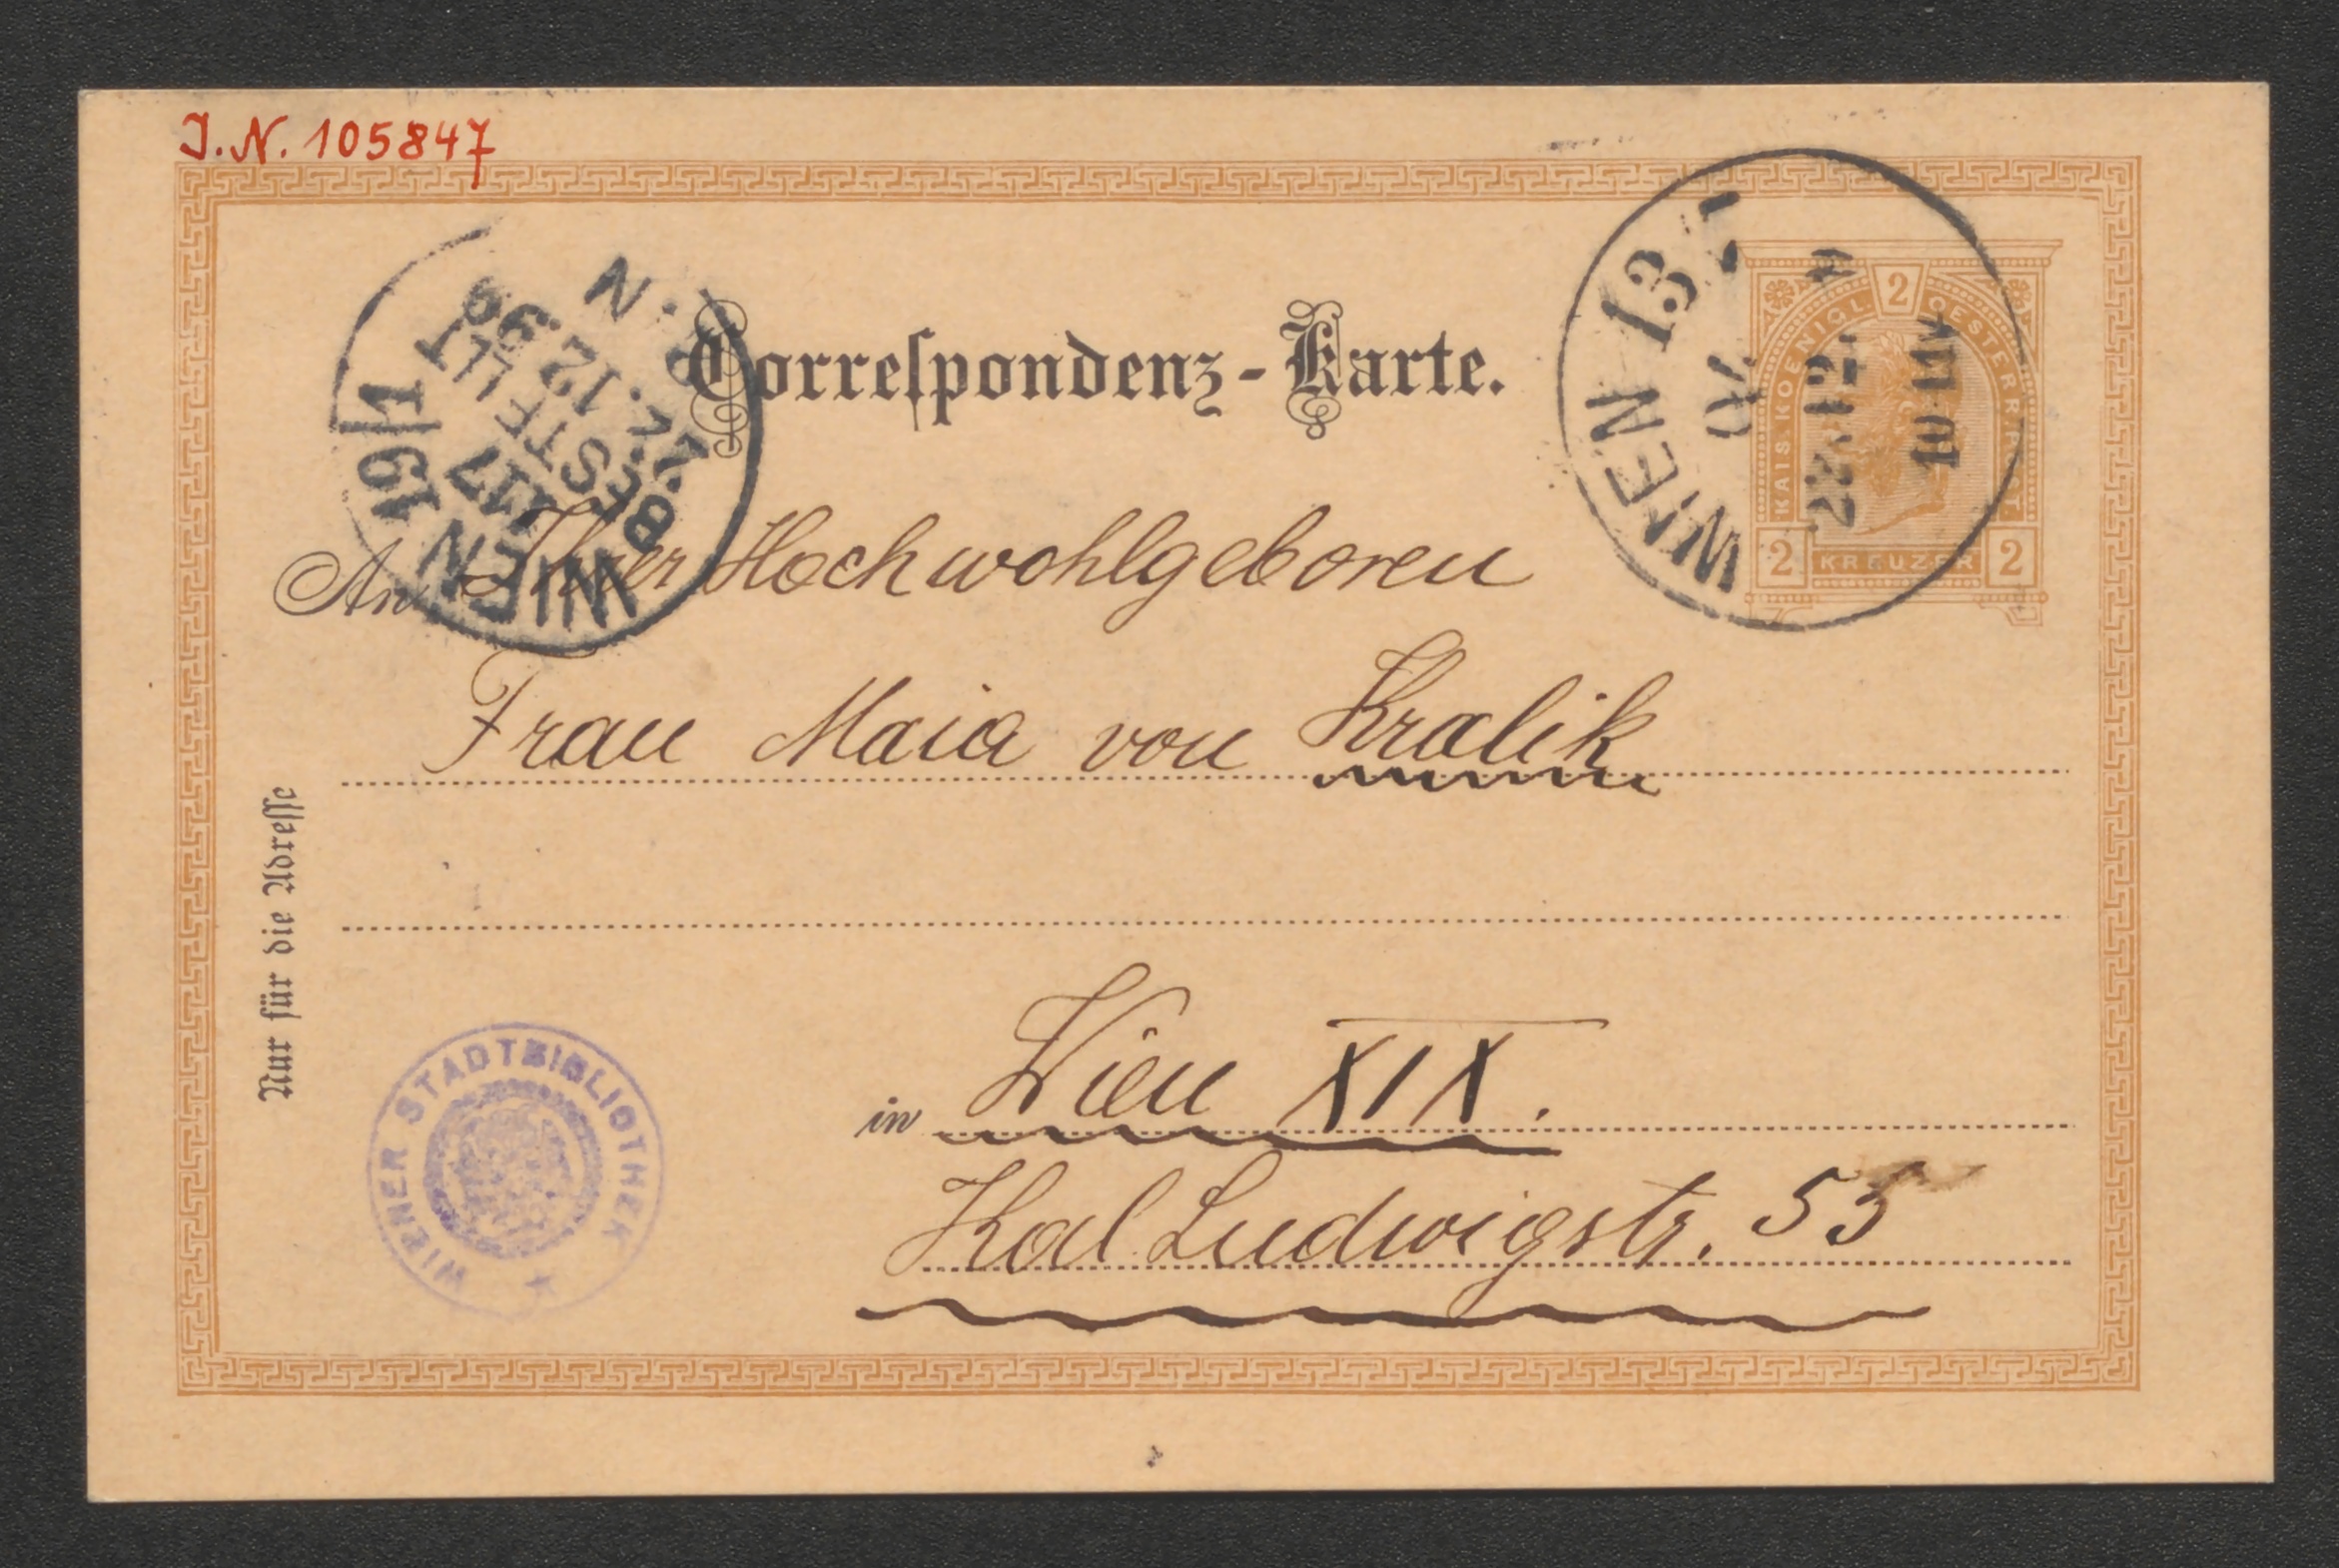 J.N. 105847
Correspondenz-Karte.
WIEN 19/1
BESTELLT
22.12.99
N
WIEN 13
22.12.
10-11V
KAIS. KOENIGL. OESTERR. POST
2
2 KREUZER 2
An Ihrer Hochwohlgeboren
Frau Maia von Kralik
Nur für die Adresse
in Wien XIX.
Karl Ludwigstr. 53
WIENER STADTBIBLIOTHEK